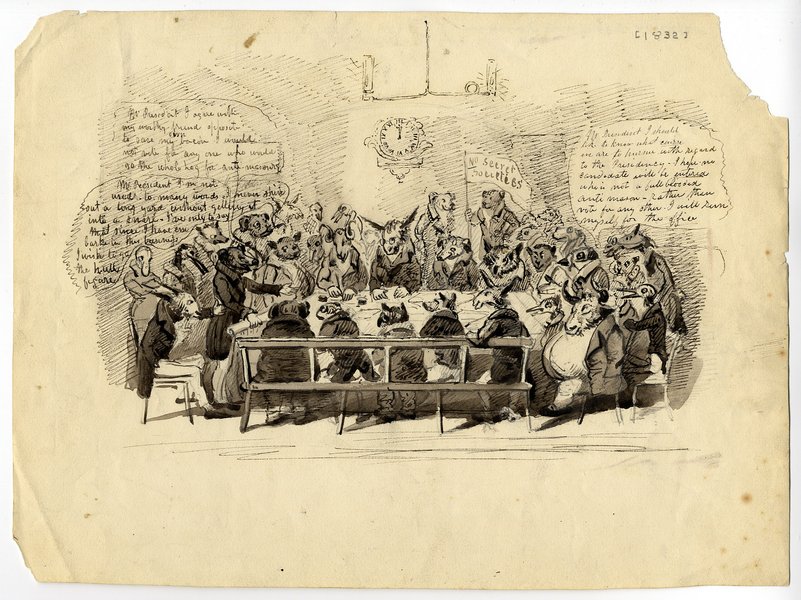 [1832]
Mr President I agree with
my worthy friend opposite
to save my bacon I would
not vote for any one who would
go the whole hog for anti-masonry
Mr President I'm not
used to many words I never
out a long yard without getting it
into a snarl. I've only to say
that since I have
bark in this
I wish to go
the hull
figure
No Secret
Societies
Mr President I should
like to know what course
we are to pursue with regard
to the Presidency - I hope no
candidate will be
who is not a full blooded
anti mason - rather than
vote for any other I will run
myself for the office